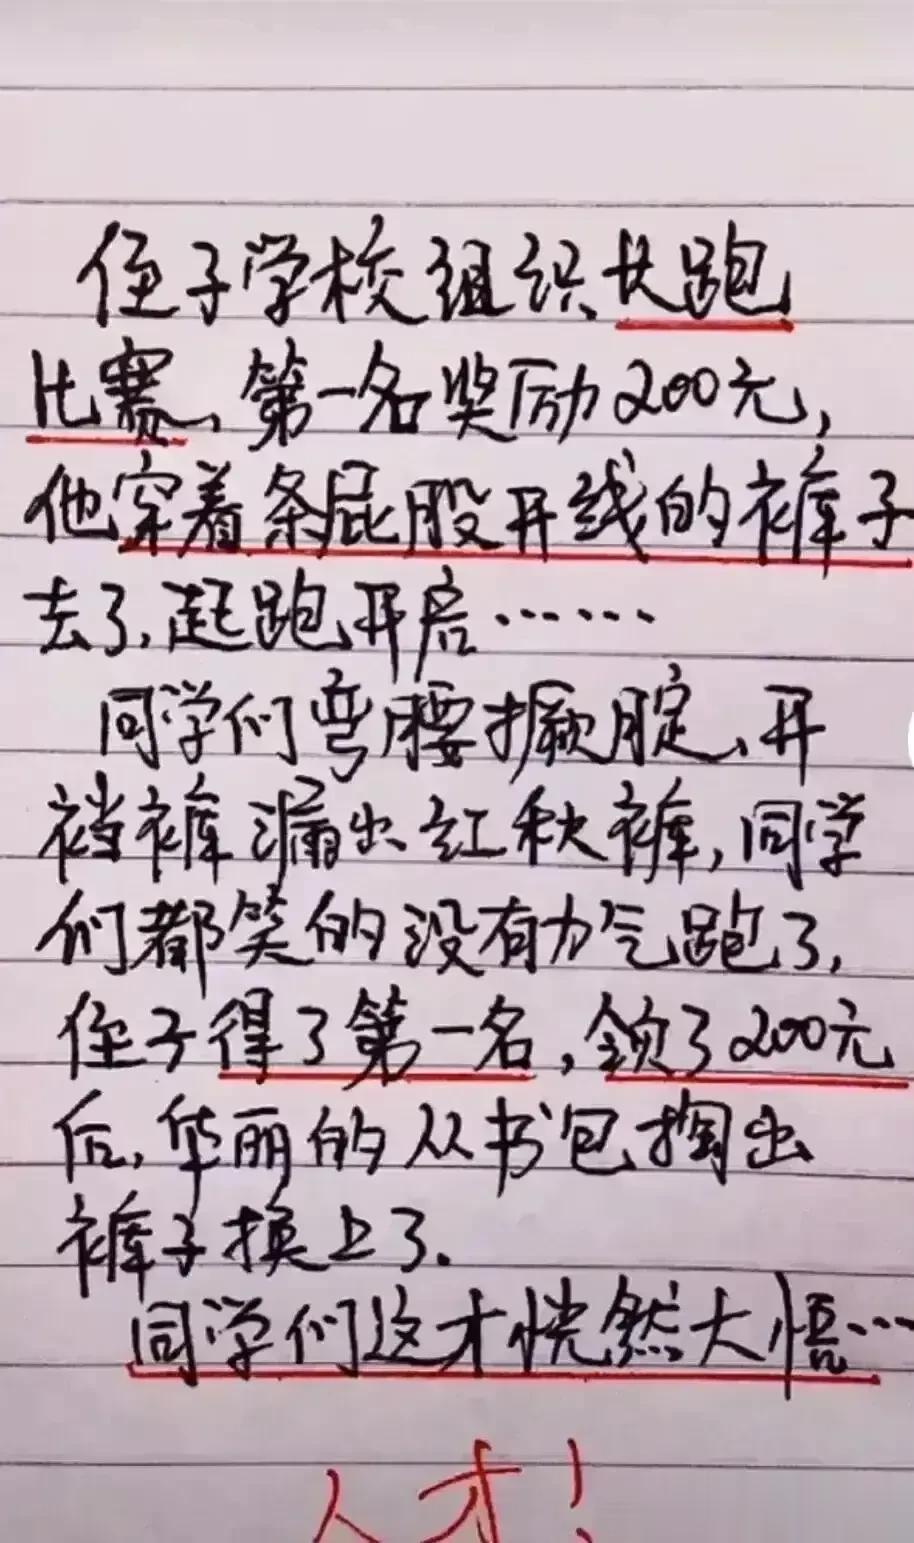 侄子学校组识长跑
比赛、第一名奖励200元,
他穿着条屁股开线的裤子
去了,起跑开启……
同学们弯腰撅腚、开
裆裤漏出红秋裤,同学
们都笑的没有力气跑了,
侄子得了第一名,领了200元
后,华丽的从书包掏出
裤子换上了.
同学们这才恍然大悟…
人才!